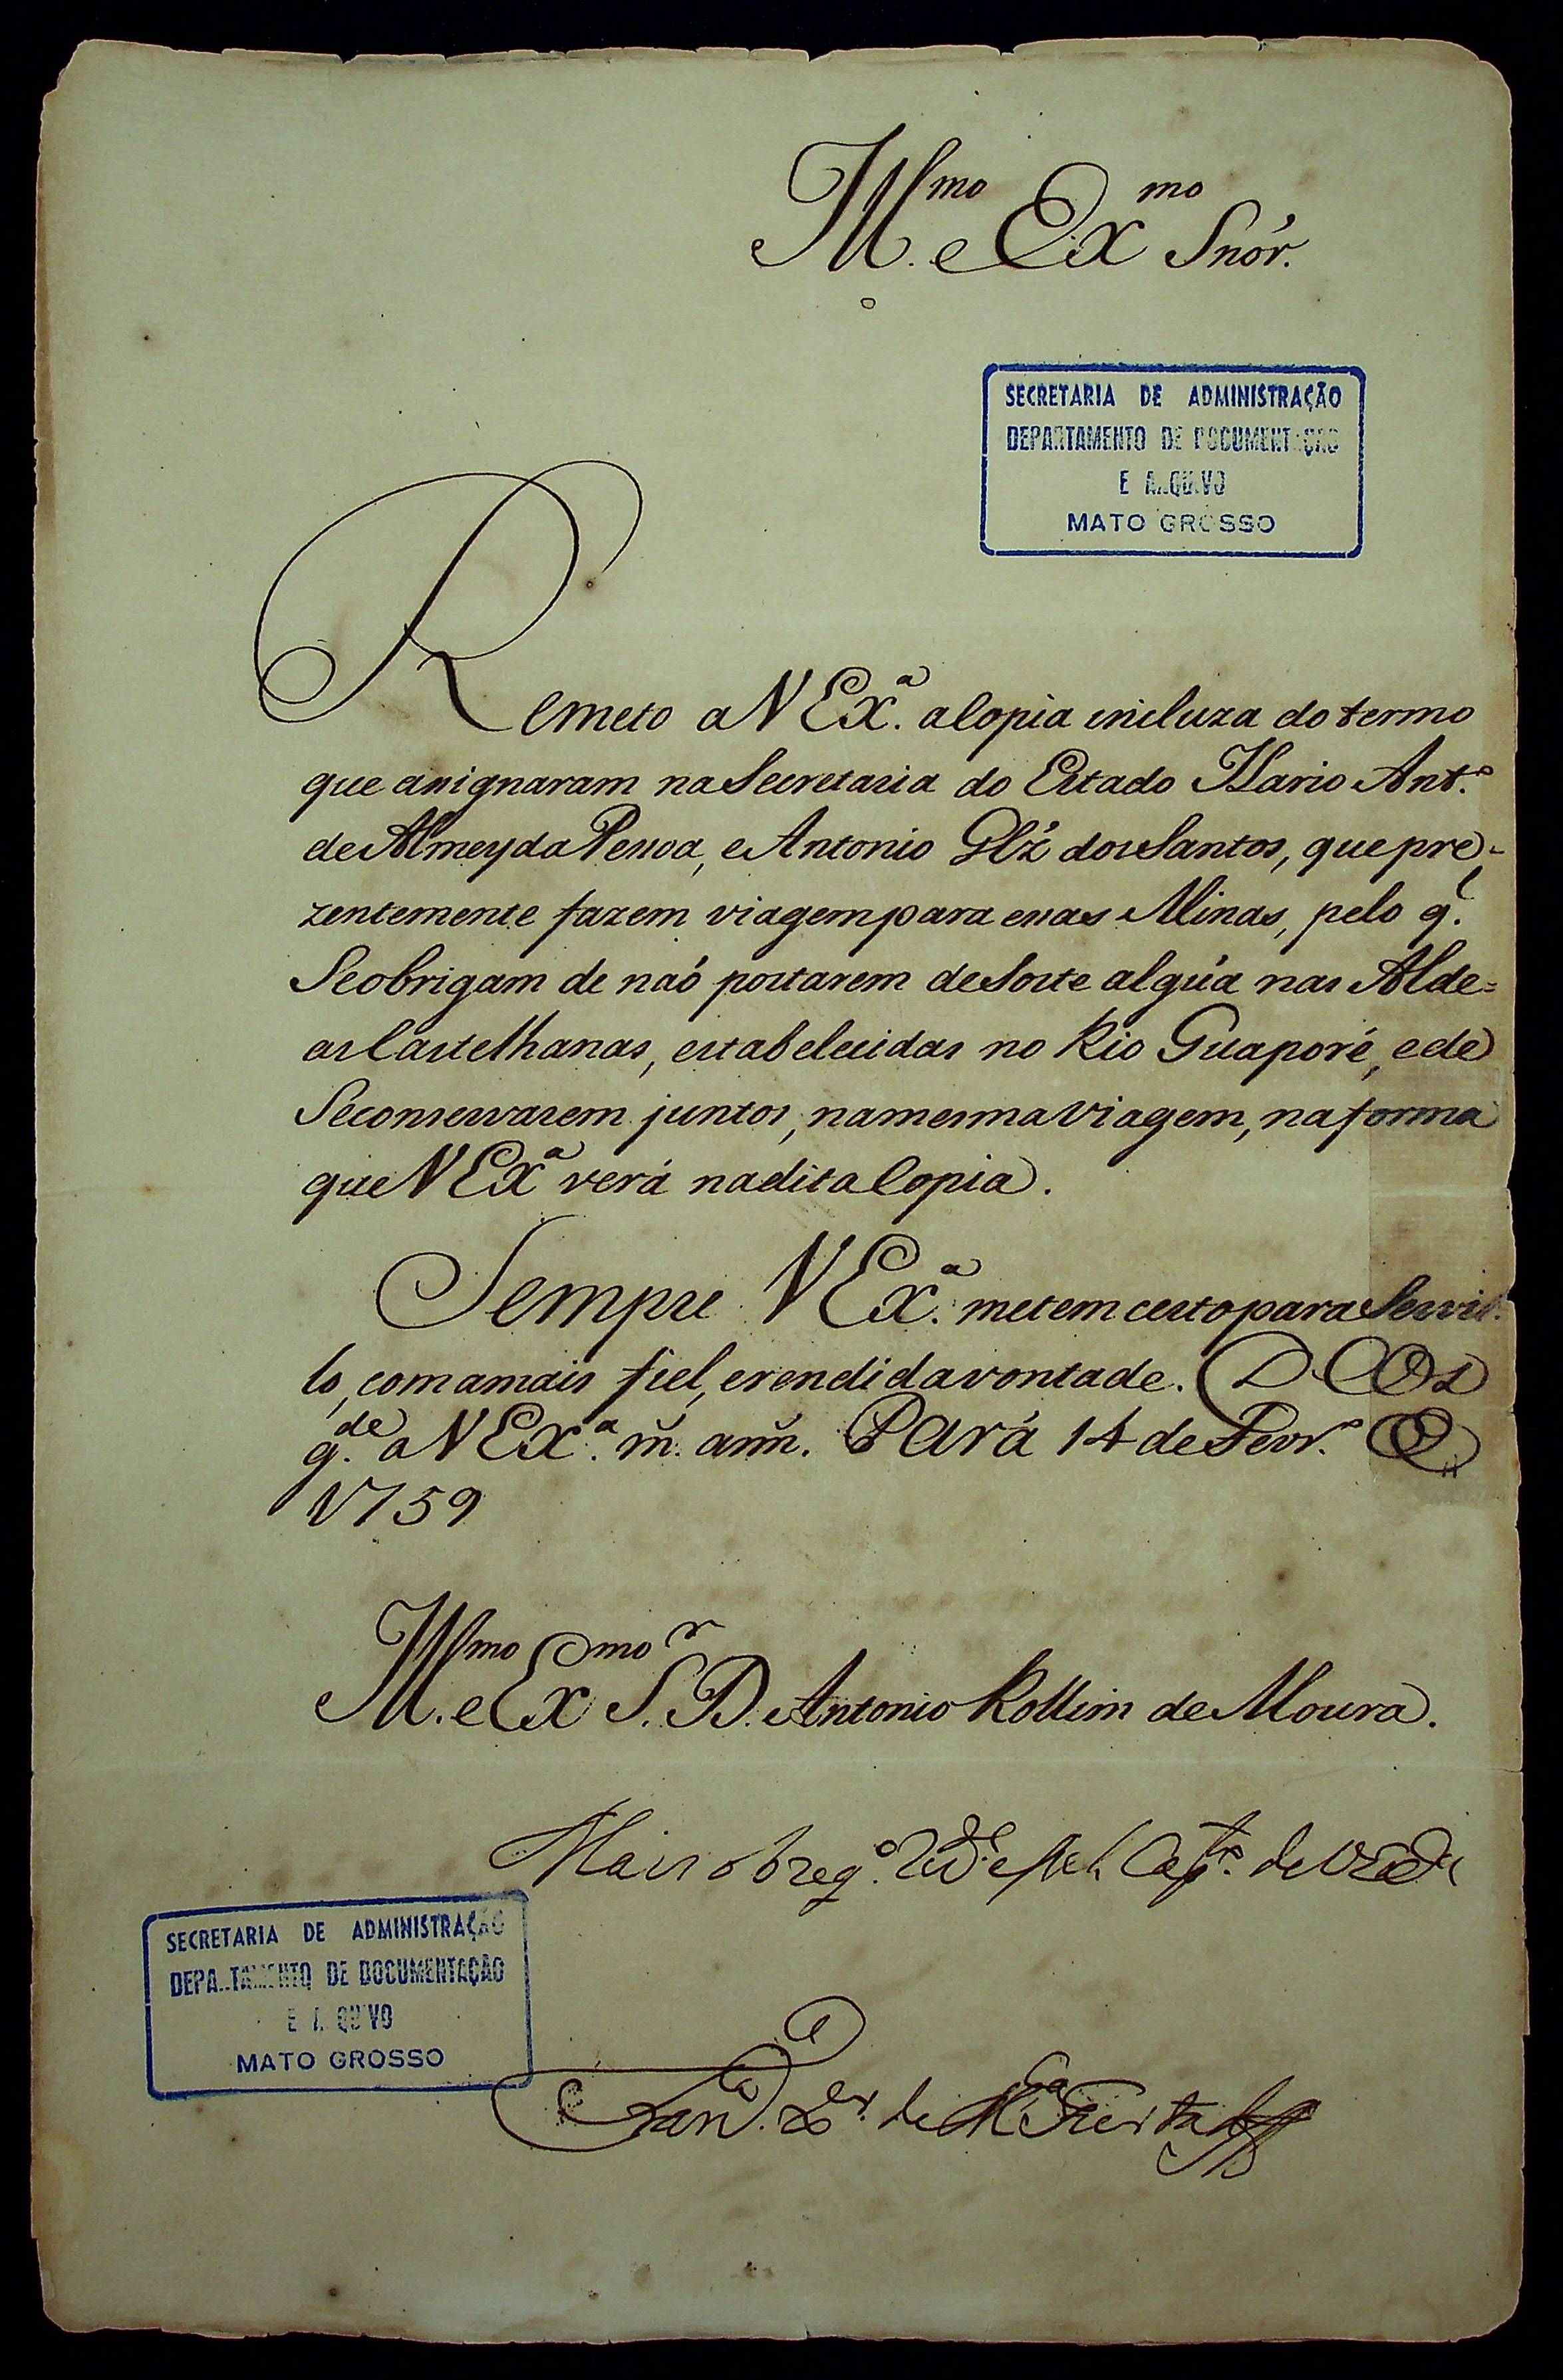 Ill.mo e Ex.mo Snór.
SECRETARIA DE ADMINISTRAÇÃO
DEPARTAMENTO DE DOCUMENTAÇÃO
E ARQUIVO
MATO GROSSO
Remeto a V Ex.ª a Copia incluza do termo
que assignaram na Secretaria do Estado Ilario Ant.º
de Almeyda Pessoa, e Antonio Glz' dos Santos, que pre-
zentemente fazem viagem para essas Minas, pelo q.l
Se obrigam de naó portarem de Sorte algúa nas Alde=
as Castelhanas, estabelecidas no Rio Guaporé, e de
Seconservarem juntos, na mesma Viagem, na forma
que V Ex.ª verá na dita Copia.
Sempre V Ex.ª me tem certo para Servi-
lo, com a mais fiel, e rendida vontade. DEOS
g.de a V Ex.ª m̃. anñ. Pará 14 de Fevr.º de
1759
Ill.mo e Ex.mo S.r D. Antonio Rollim de Moura.
Mais obrig.º e fiel Capt.º de V Ex.ª
SECRETARIA DE ADMINISTRAÇÃO
DEPARTAMENTO DE DOCUMENTAÇÃO
E ARQUIVO
MATO GROSSO
de